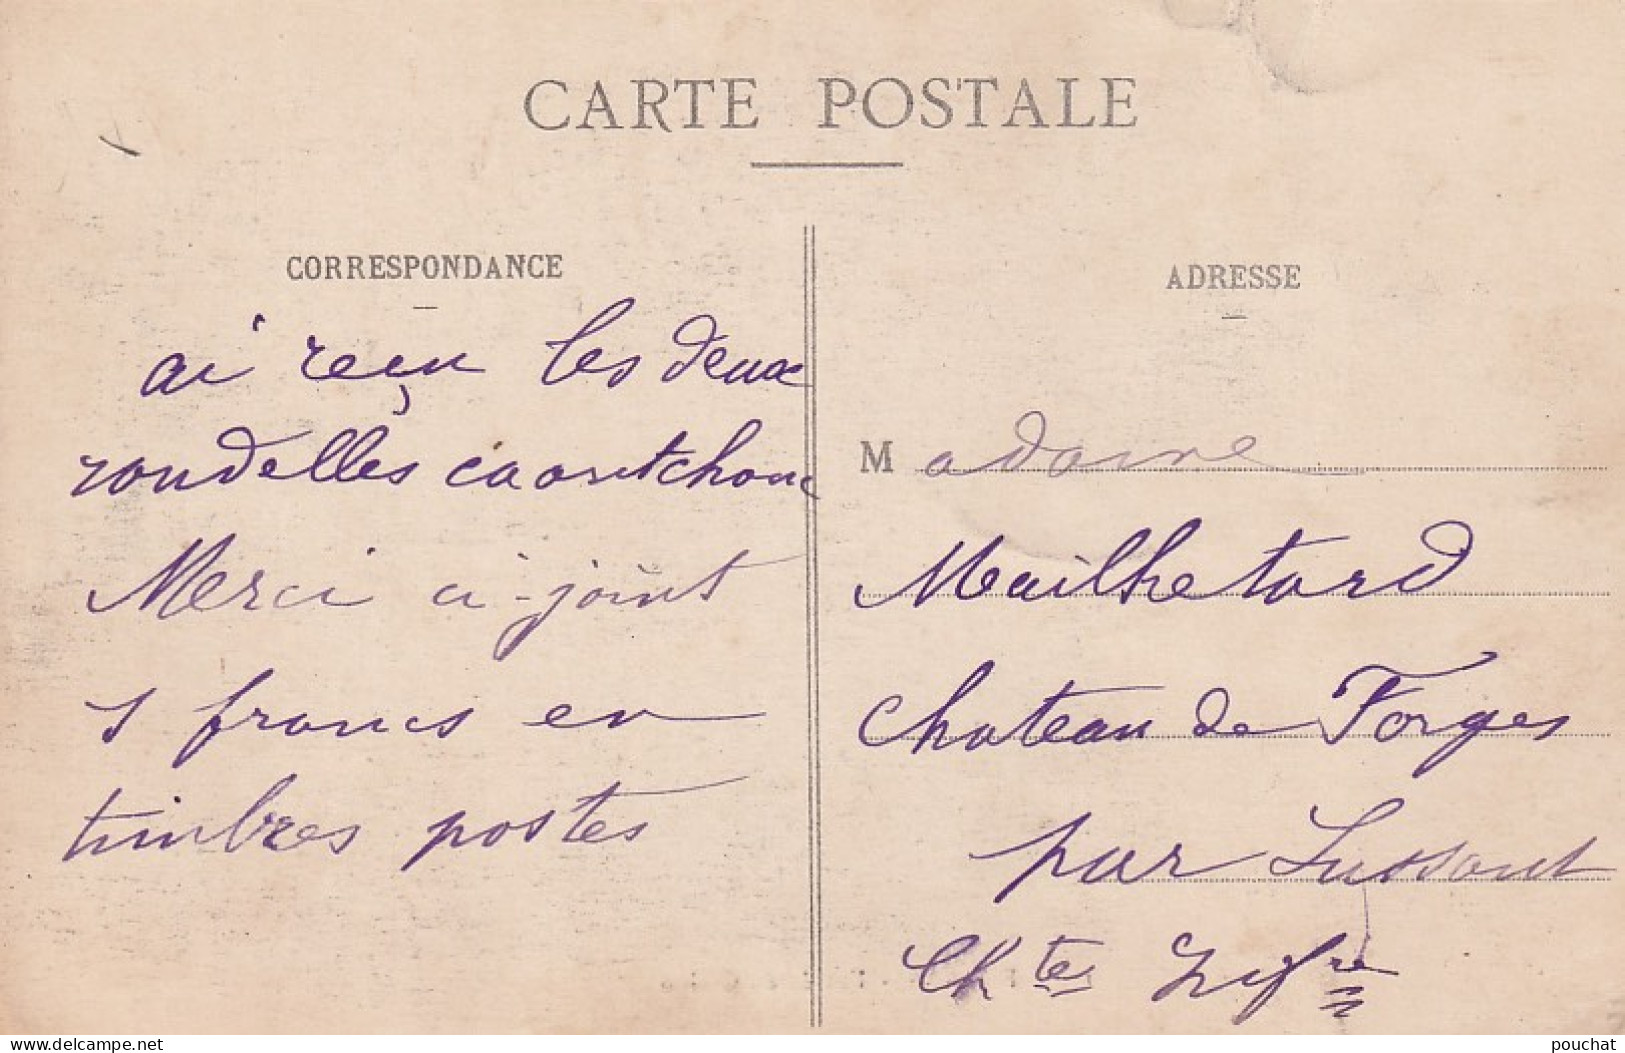 CARTE POSTALE
CORRESPONDANCE
ai reçu les deux
rondelles caoutchouc
Merci ci-joint
5 francs en
timbres postes
ADRESSE
Madame
Mailhetard
Chateau de Forges
par Lussant
Chte Infre
www.delcampe.net
pouchat